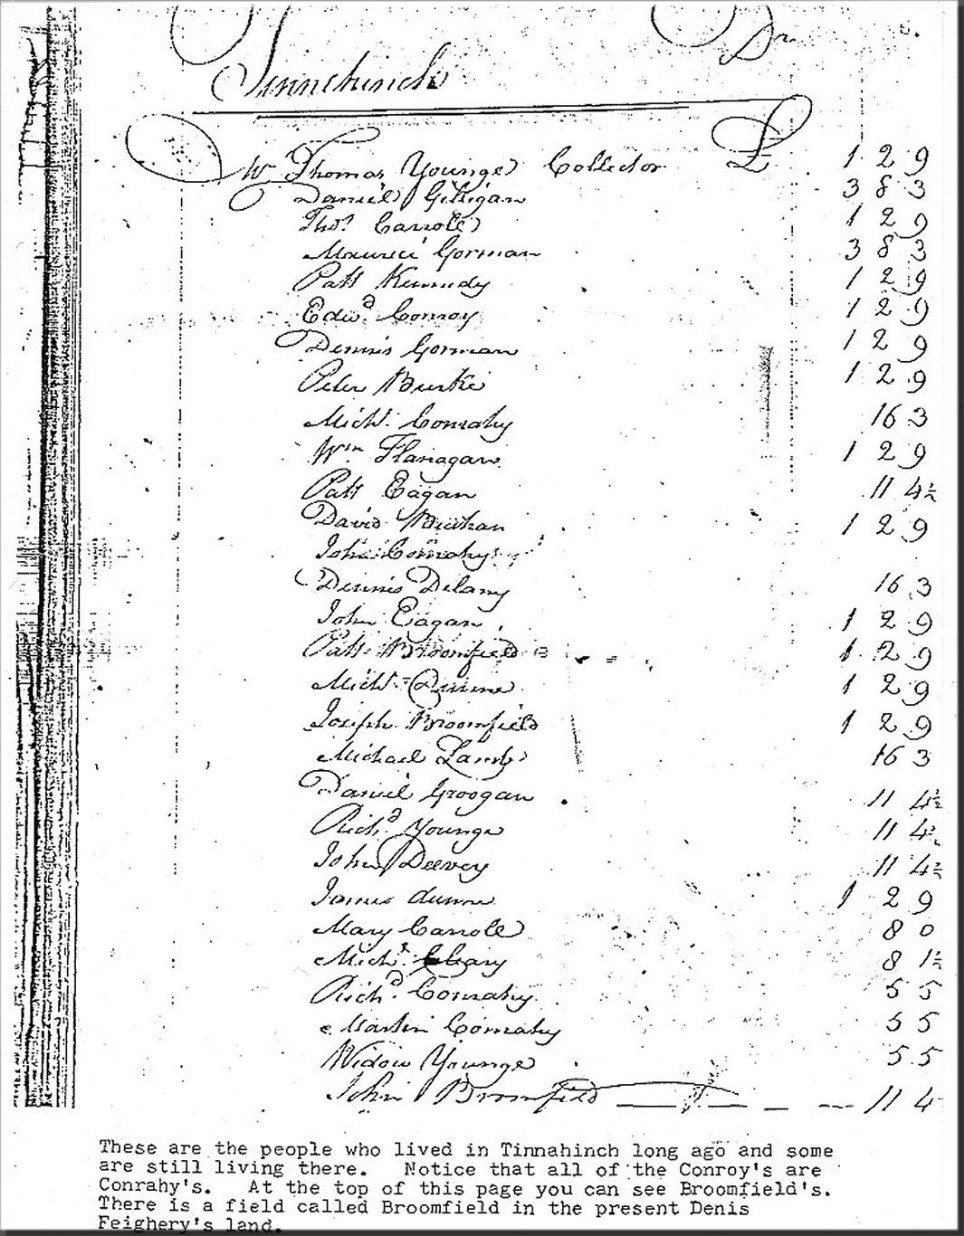 Dr
Tinnehinch
Mr Thomas Younge Collector £ 1 2 9
Daniel Gilligan 3 8 3
Thos. Carrole 1 2 9
Maurice Gorman 3 8 3
Patt Kennedy 1 2 9
Edwd. Conroy 1 2 9
Dennis Gorman 1 2 9
Peter Burke 1 2 9
Michl. Conrahy 16 3
Wm Flanagan 1 2 9
Patt Eagan 11 4½
David 1 2 9
John Conrahy
Dennis Delany 16 3
John Eagan 1 2 9
Patt Broomfield 1 2 9
Michl. Dunne 1 2 9
Joseph Broomfield 1 2 9
Michael Lamb 16 3
Daniel Groogan 11 4½
Richd. Younge 11 4½
John Deevey 11 4½
James dunne 1 2 9
Mary Carrole 8 0
Michl. Cleary 8 1½
Richd. Conrahy 5 5
Martin Conrahy 5 5
Widow Younge 5 5
John Broomfield 11 4
These are the people who lived in Tinnahinch long ago and some
are still living there. Notice that all of the Conroy's are
Conrahy's. At the top of this page you can see Broomfield's.
There is a field called Broomfield in the present Denis
Feighery's land.